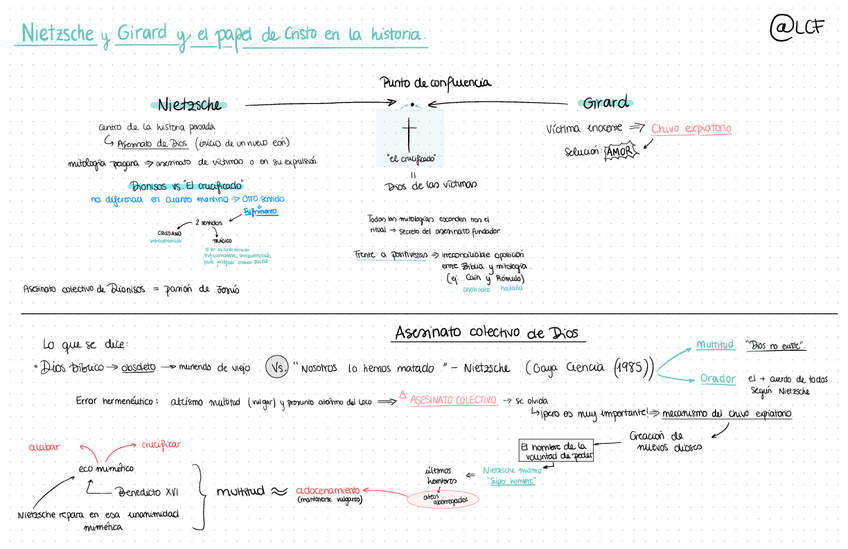 Nietzsche y Girard y el papel de Cristo en la historia.
@LCF
Punto de confluencia
Nietzsche
Centro de la historia pasada
Asesinato de Dios (inicio de un nuevo eón)
mitología pagana ⇒ asesinato de víctimas o en su expulsión.
Dionisos vs "El crucificado"
no diferencia en cuanto martirio ⇒ otro sentido
Sufrimiento
2 sentidos
CRISTIANO
TRÁGICO
Asesinato colectivo de Dionisos = pasión de Jesús
"el crucificado"
=
Dios de las víctimas
Todas las mitologías esconden tras el
ritual → secreto del asesinato fundador
Frente a positivistas ⇒ irreconciliable oposición
entre Biblia y mitología
(ej. Caín y Rómulo)
asesinato hazaña
Girard
Víctima inocente ⇒ Chivo expiatorio
Solución: AMOR
Asesinato colectivo de Dios
Lo que se dice:
• Dios bíblico → obsoleto → muriendo de viejo Vs. "Nosotros lo hemos matado" - Nietzsche (Gaya Ciencia (1985))
multitud "Dios no existe".
Orador el + cuerdo de todos
según Nietzsche
Error hermenéutico: ateísmo multitud (vulgar) y presunto ateísmo del Loco ⇒ ASESINATO COLECTIVO → se olvida
¡pero es muy importante! ⇒ mecanismo del chivo expiatorio
Creación de
nuevos dioses
El hombre de la
voluntad de poder
Nietzsche mismo
"Súper hombre"
últimos
hombres
ateos
aborregados
alabar
crucificar
eco mimético
Benedicto XVI
Nietzsche repara en esa unanimidad
mimética
multitud ≈ adocenamiento
(mantenerse vulgares)